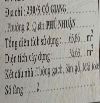 Địa chỉ: 290/5 CÔ GIANG
Phường 2 Quận PHÚ NHUẬN
Tổng diện tích sử dụng: 65,66 m²
Diện tích xây dựng: 36,63 m²
Kết cấu nhà: Tường gạch, Sàn gỗ, Mái
Số tầng